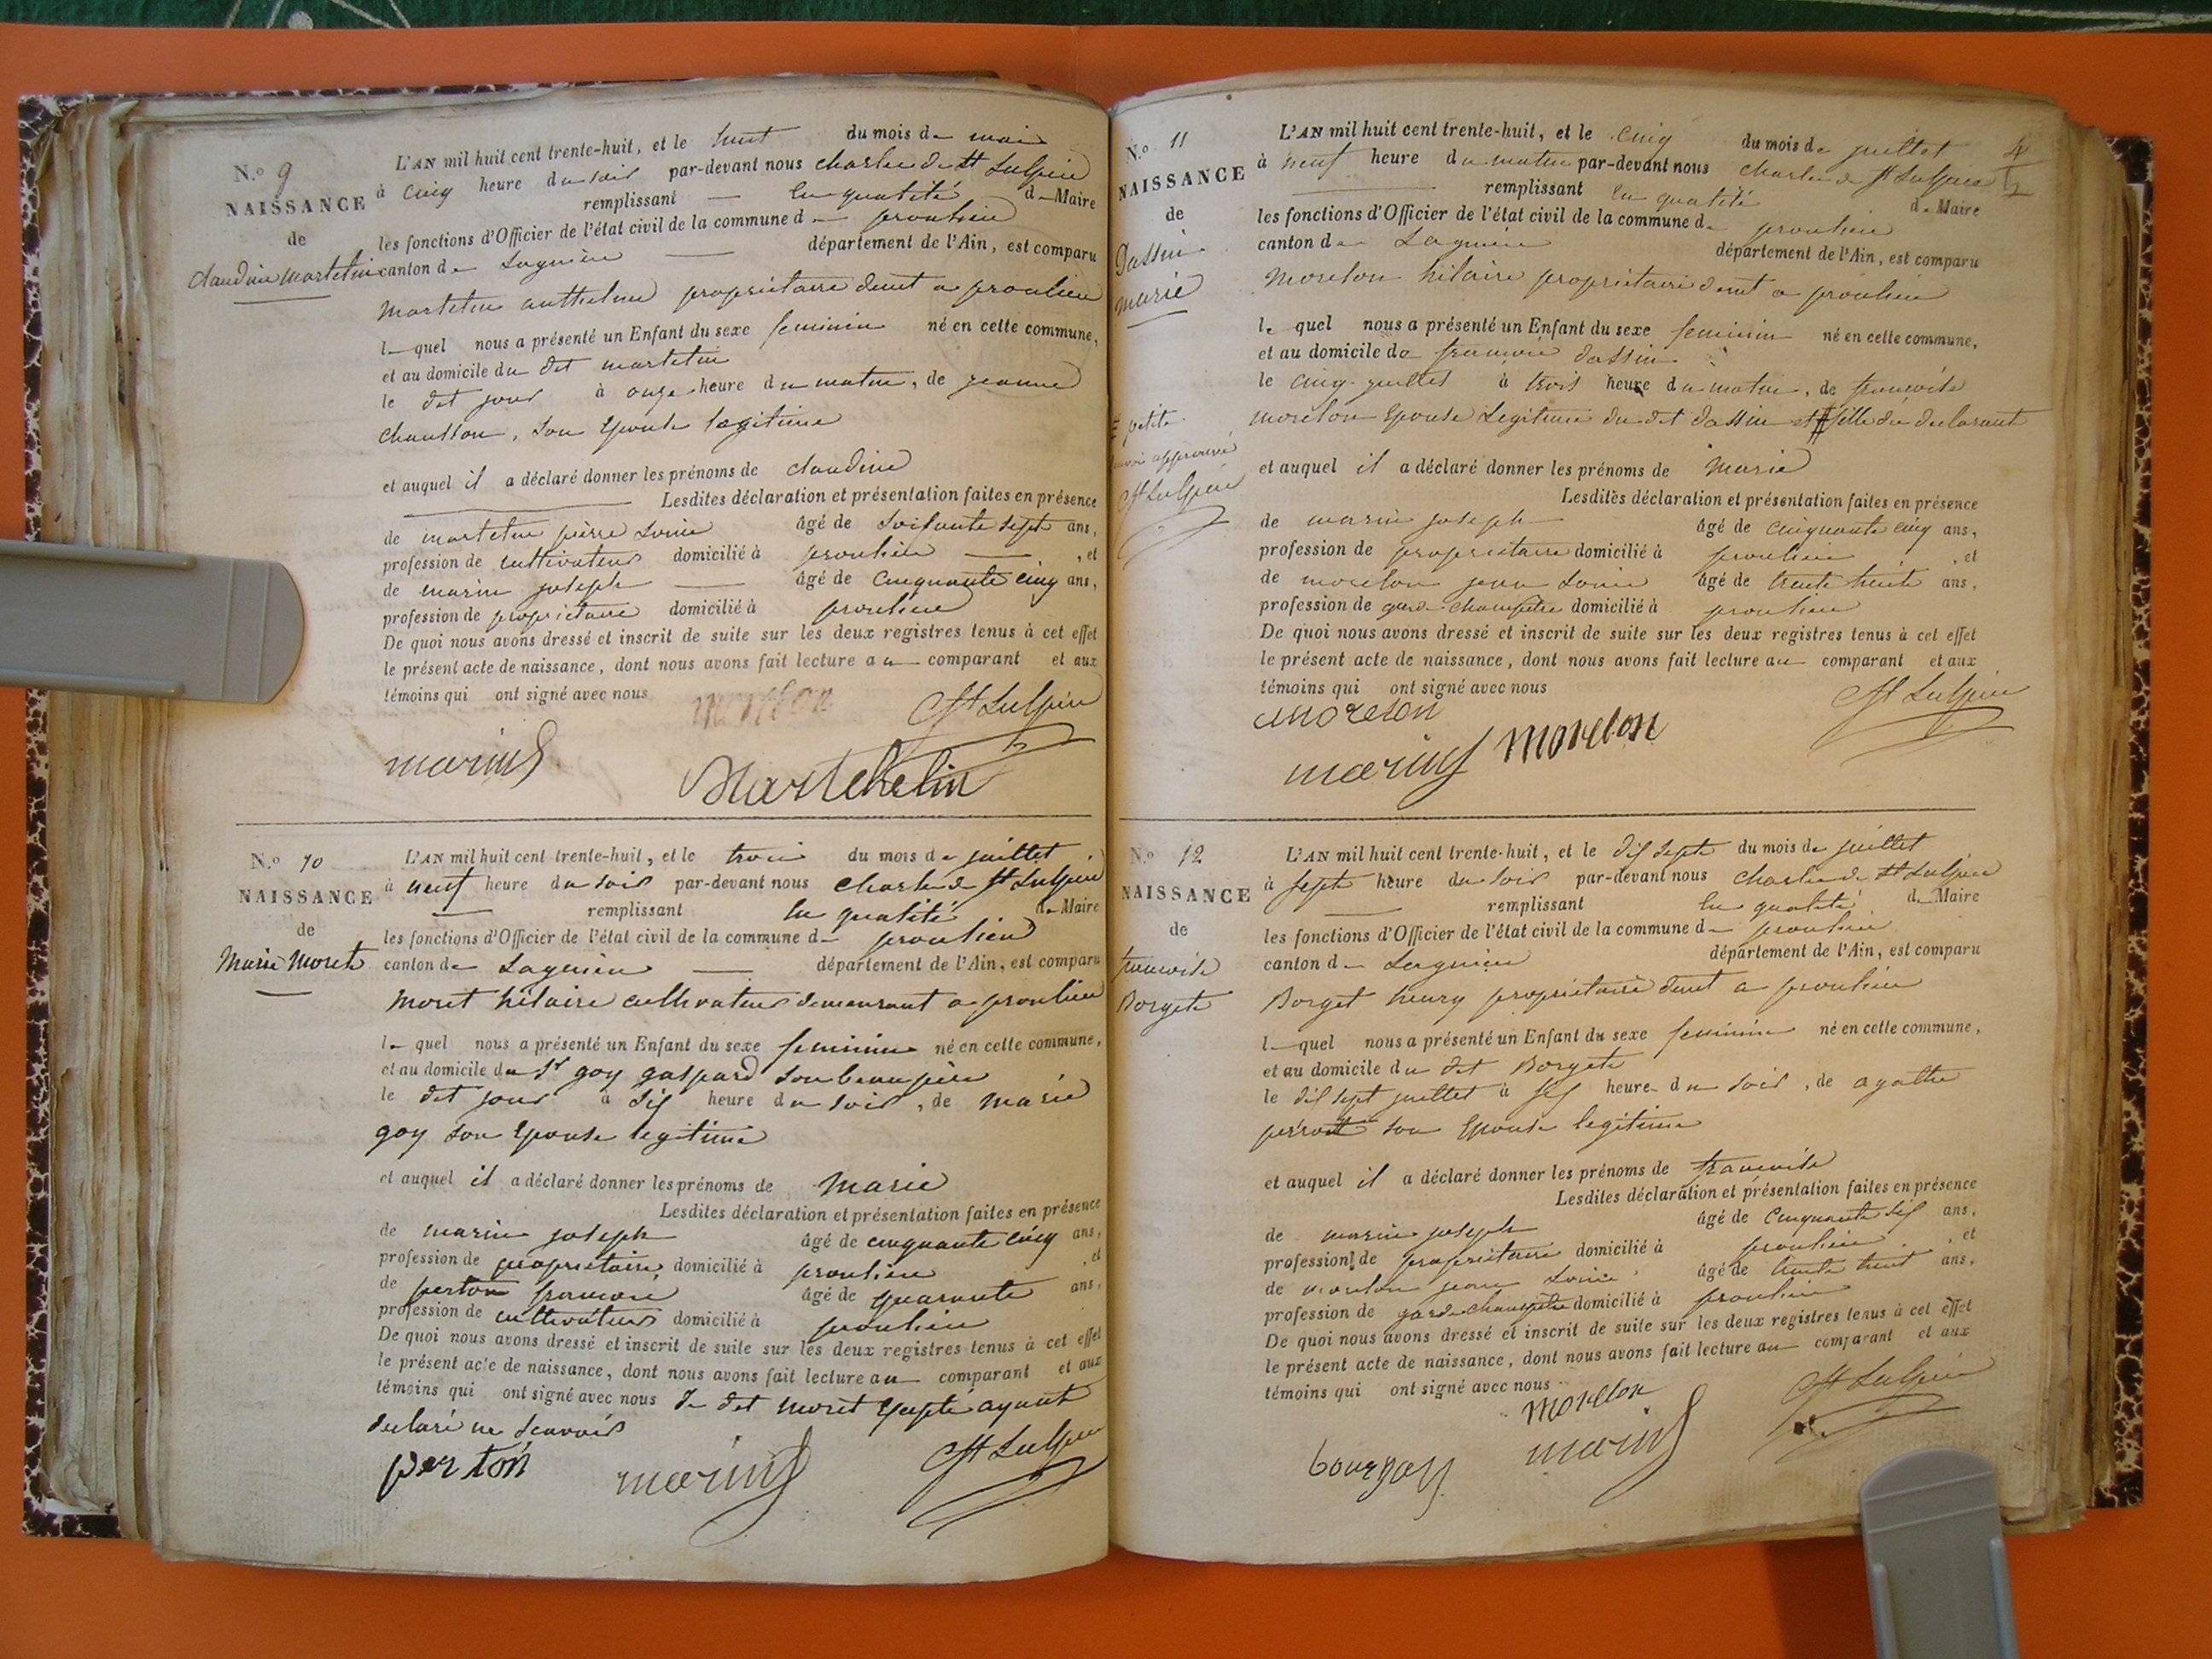 N.o 9
NAISSANCE
de
claudine martelin
L'AN mil huit cent trente-huit, et le huit du mois de mai
à cinq heure du soir par-devant nous charles de St Sulpice
remplissant en qualité de Maire
les fonctions d'Officier de l'état civil de la commune de proulieu
canton de Lagnieu département de l'Ain, est comparu
martelin anthelme propriétaire demt a proulieu
le quel nous a présenté un Enfant du sexe feminin né en cette commune,
et au domicile du dit martelin
le dit jour à onze heure du matin, de jeanne
chausson, son epouse legitime
et auquel il a déclaré donner les prénoms de claudine
Lesdites déclaration et présentation faites en présence
de martelin pierre Louis âgé de soisante sept ans,
profession de cultivateur domicilié à proulieu, et
de marin joseph âgé de cinquante cinq ans,
profession de propriétaire domicilié à proulieu
De quoi nous avons dressé et inscrit de suite sur les deux registres tenus à cet effet
le présent acte de naissance, dont nous avons fait lecture au comparant et aux
témoins qui ont signé avec nous
St Sulpice
marin
Martehelin
N.o 10
NAISSANCE
de
Marie Moret
L'AN mil huit cent trente-huit, et le trois du mois de juillet
à neuf heure du soir par-devant nous charles de St Sulpice
remplissant en qualité de Maire
les fonctions d'Officier de l'état civil de la commune de proulieu
canton de Lagnieu département de l'Ain, est comparu
moret hilaire cultivateur demeurant a proulieu
le quel nous a présenté un Enfant du sexe feminin né en cette commune,
et au domicile du Sr goy gaspard son beau père
le dit jour à six heure du soir, de marie
goy son epouse legitime
et auquel il a déclaré donner les prénoms de Marie
Lesdites déclaration et présentation faites en présence
de marin joseph âgé de cinquante cinq ans,
profession de propriétaire domicilié à proulieu, et
de perton francois âgé de quarante ans,
profession de cultivateur domicilié à proulieu
De quoi nous avons dressé et inscrit de suite sur les deux registres tenus à cet effet
le présent acte de naissance, dont nous avons fait lecture au comparant et aux
témoins qui ont signé avec nous le dit moret excepté ayant
declaré ne scavoir
perton marin St Sulpice
N.o 11
NAISSANCE
de
Dassin
marie
petite
approuvé
St Sulpice
L'AN mil huit cent trente-huit, et le cinq du mois de juillet
à neuf heure du matin par-devant nous charles de St Sulpice
remplissant en qualité de Maire
les fonctions d'Officier de l'état civil de la commune de proulieu
canton de Lagnieu département de l'Ain, est comparu
morelon hilaire propriétaire demt a proulieu
le quel nous a présenté un Enfant du sexe feminin né en cette commune,
et au domicile de francois dassin
le cinq juillet à trois heure du matin, de francoise
morelon epouse legitime du dit dassin et fille du declarant
et auquel il a déclaré donner les prénoms de Marie
Lesdites déclaration et présentation faites en présence
de marin joseph âgé de cinquante cinq ans,
profession de propriétaire domicilié à proulieu, et
de morelon jean Louis âgé de trente huit ans,
profession de garde champetre domicilié à proulieu
De quoi nous avons dressé et inscrit de suite sur les deux registres tenus à cet effet
le présent acte de naissance, dont nous avons fait lecture au comparant et aux
témoins qui ont signé avec nous
St Sulpice
moreton
marin morelon
N.o 12
NAISSANCE
de
francoise
Borget
L'AN mil huit cent trente-huit, et le dix sept du mois de juillet
à sept heure du soir par-devant nous charles de St Sulpice
remplissant en qualité de Maire
les fonctions d'Officier de l'état civil de la commune de proulieu
canton de Lagnieu département de l'Ain, est comparu
Borget henry propriétaire demt a proulieu
le quel nous a présenté un Enfant du sexe feminin né en cette commune,
et au domicile du dit Borget
le dix sept juillet à six heure du soir, de agathe
son epouse legitime
et auquel il a déclaré donner les prénoms de francoise
Lesdites déclaration et présentation faites en présence
de marin joseph âgé de cinquante six ans,
profession de propriétaire domicilié à proulieu, et
de morelon jean Louis âgé de trente huit ans,
profession de garde champetre domicilié à proulieu
De quoi nous avons dressé et inscrit de suite sur les deux registres tenus à cet effet
le présent acte de naissance, dont nous avons fait lecture au comparant et aux
témoins qui ont signé avec nous
morelon St Sulpice
marin